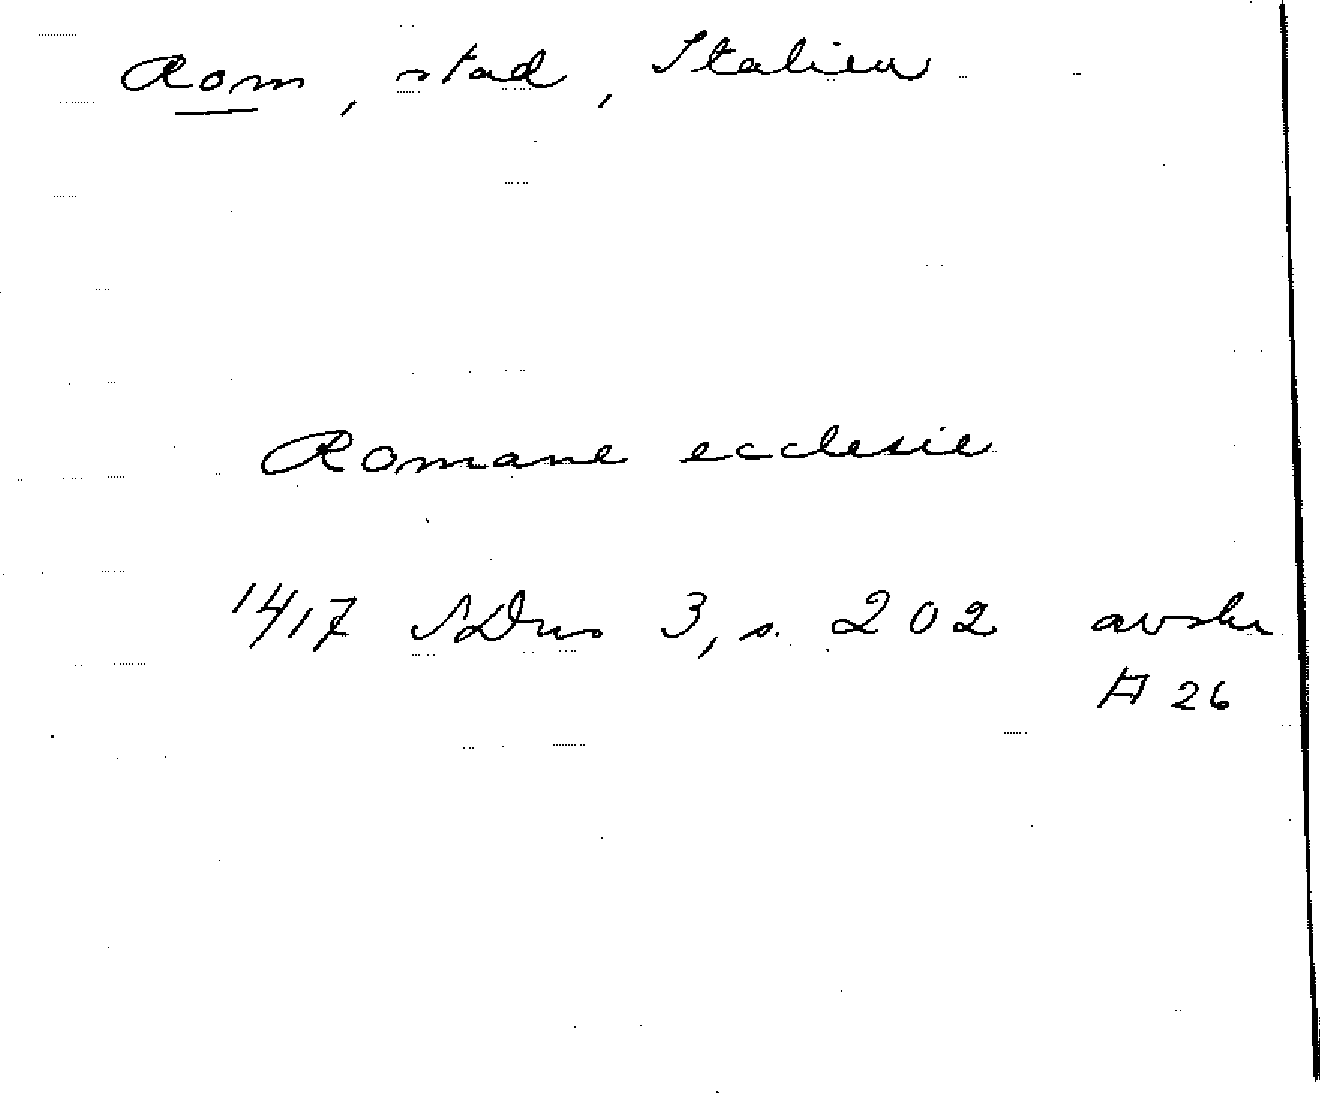 Rom, stad, Italien
Romane ecclesie
1417 SDns 3, s. 202 avskr
A 26